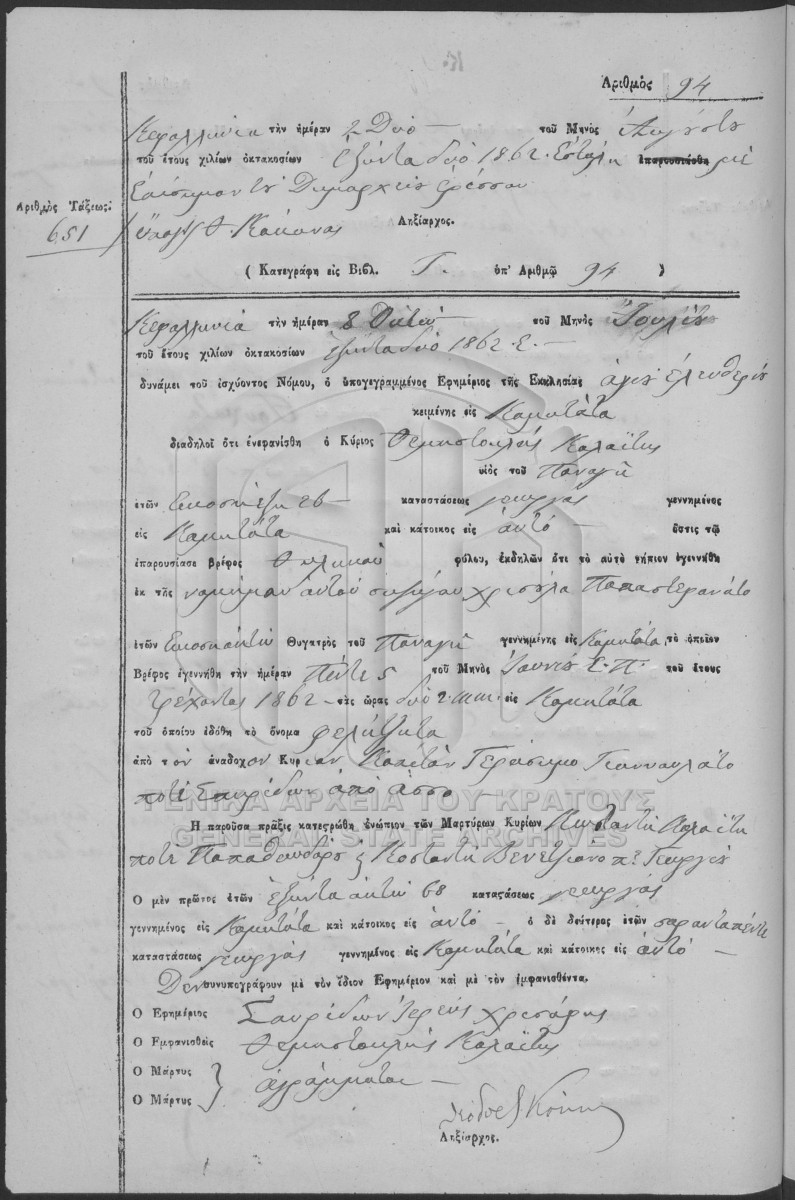 Ἀριθμὸς 94
Κεφαλληνία τὴν ἡμέραν 2 Δύο τοῦ Μηνὸς Αὐγούστου
τοῦ ἔτους χιλίων ὀκτακοσίων ἑξήντα δύο 1862. Ἐστάλη ἐπαρουσιάσθη μὲ
τοῦ Δημαρχείου Ἐρίσσου
Ἀριθμὸς Τάξεως:
651
Θ. Ληξίαρχος.
( Κατεγράφη εἰς Βιβλ. Γ. ὑπ' Ἀριθμῷ 94 )
Κεφαλληνία τὴν ἡμέραν 8 Ὀκτώ τοῦ Μηνὸς Ἰουλίου
τοῦ ἔτους χιλίων ὀκτακοσίων ἑξήντα δύο 1862. Ε.
δυνάμει τοῦ ἰσχύοντος Νόμου, ὁ ὑπογεγραμμένος Ἐφημέριος τῆς Ἐκκλησίας ἁγίου Ἐλευθερίου
κειμένης εἰς Κομητάτα
διαδηλοῖ ὅτι ἐνεφανίσθη ὁ Κύριος Θεμηστοκλής Καλαΐτης
υἱὸς τοῦ Παναγῆ
ἐτῶν Εικοσιέξη 26 καταστάσεως γεωργός γεννημένος
εἰς Κομητάτα καὶ κάτοικος εἰς αὐτό ὅστις τῷ
ἐπαρουσίασε βρέφος θηλυκοῦ φύλου, ἐκδηλῶν ὅτι τὸ αὐτὸ νήπιον ἐγεννήθη
ἐκ τῆς νομήμου αὐτοῦ συζύγου Χρισούλα Παπαστεφανάτο
ἐτῶν Εικοσιοκτώ Θυγατρὸς τοῦ Παναγῆ γεννημένης εἰς Κομητάτα, τὸ ὁποῖον
Βρέφος ἐγεννήθη τὴν ἡμέραν Πέντε 5 τοῦ Μηνὸς Ἰουνίου Ε. Π. τοῦ ἔτους
τρέχοντος 1862 τὰς ὥρας δύο 2 μ.μ. εἰς Κομητάτα
τοῦ ὁποίου ἐδόθη τὸ ὄνομα Φελητζήτα
ἀπὸ τὸν ἀνάδοχον Κύριον Γεράσιμο Γιαννουλάτο
ποτὲ Σπυρίδων ἀπὸ Ἄσσο
ΓΕΝΙΚΑ ΑΡΧΕΙΑ ΤΟΥ ΚΡΑΤΟΥΣ
GENERAL STATE ARCHIVES
Ἡ παροῦσα πρᾶξις κατεστρώθη ἐνώπιον τῶν Μαρτύρων Κυρίων Κοσταντή Καλαΐτη
ποτὲ Παπαθεωδόρο ϗ Κοσταντή Βενετζιάνο π. Γεωργίου
Ὁ μὲν πρῶτος ἐτῶν ἑξήντα ὀκτώ 68 καταστάσεως γεωργός
γεννημένος εἰς Κομητάτα καὶ κάτοικος εἰς αὐτό ὁ δὲ δεύτερος ἐτῶν σαρανταπέντε
καταστάσεως γεωργός γεννημένος εἰς Κομητάτα καὶ κάτοικης εἰς αὐτό
Δεν συνυπογράφουν μὲ τὸν ἴδιον Ἐφημέριον καὶ μὲ τὸν ἐμφανισθέντα.
Ὁ Ἐφημέριος Σπυρίδων Ἱερεύς
Ὁ Ἐμφανισθεὶς Θεμηστοκλής Καλαΐτης
Ὁ Μάρτυς
Ὁ Μάρτυς } ἀγράμματοι
Ληξίαρχος.